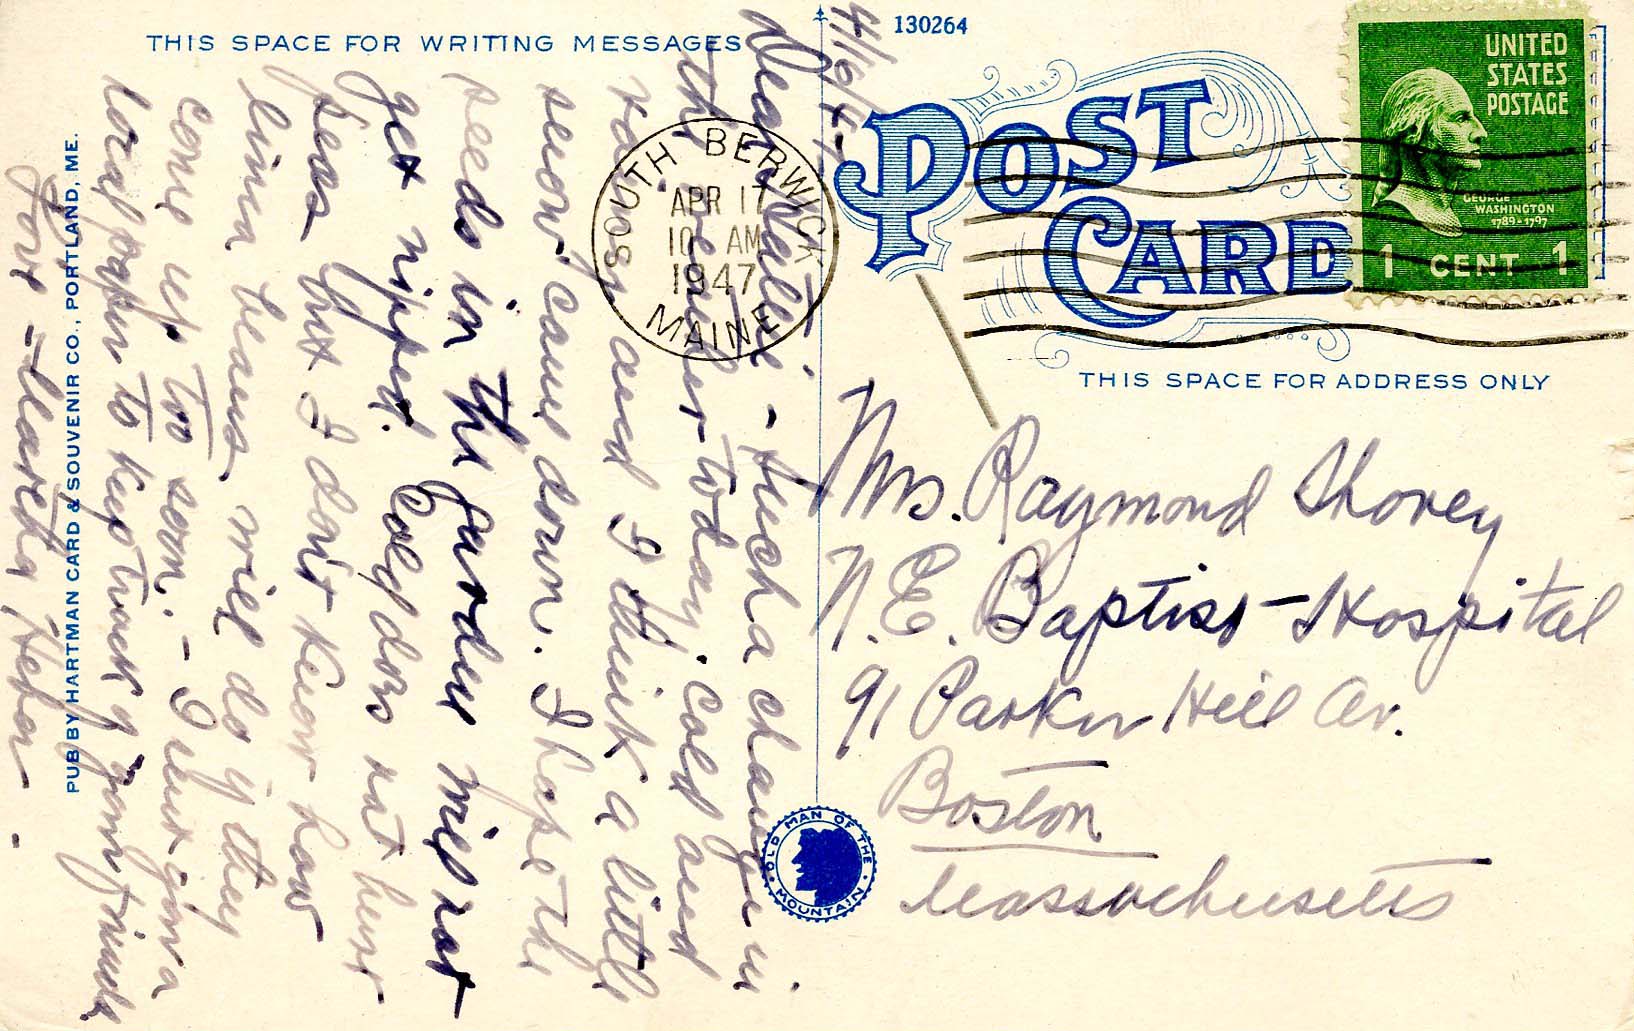 THIS SPACE FOR WRITING MESSAGES
130264
POST
CARD
UNITED
STATES
POSTAGE
GEORGE
WASHINGTON
1789-1797
1 CENT 1
SOUTH BERWICK
APR 17
10 AM
1947
MAINE
THIS SPACE FOR ADDRESS ONLY
4/16/47
Dear - Such a change in
the weather today. cold and
raw and I think a little
snow came down. I hope the
seeds in the garden will not
get nipped. Cold does not hurt
peas but I don't know how
lima beans will do if they
come up too soon. - I sent you a
local paper to keep track of your friends
Love -
Mrs. Raymond Shorey
N.E. Baptist Hospital
91 Parker Hill Av.
Boston
Massachusetts
OLD MAN OF THE
MOUNTAIN
PUB BY HARTMAN CARD & SOUVENIR CO., PORTLAND, ME.